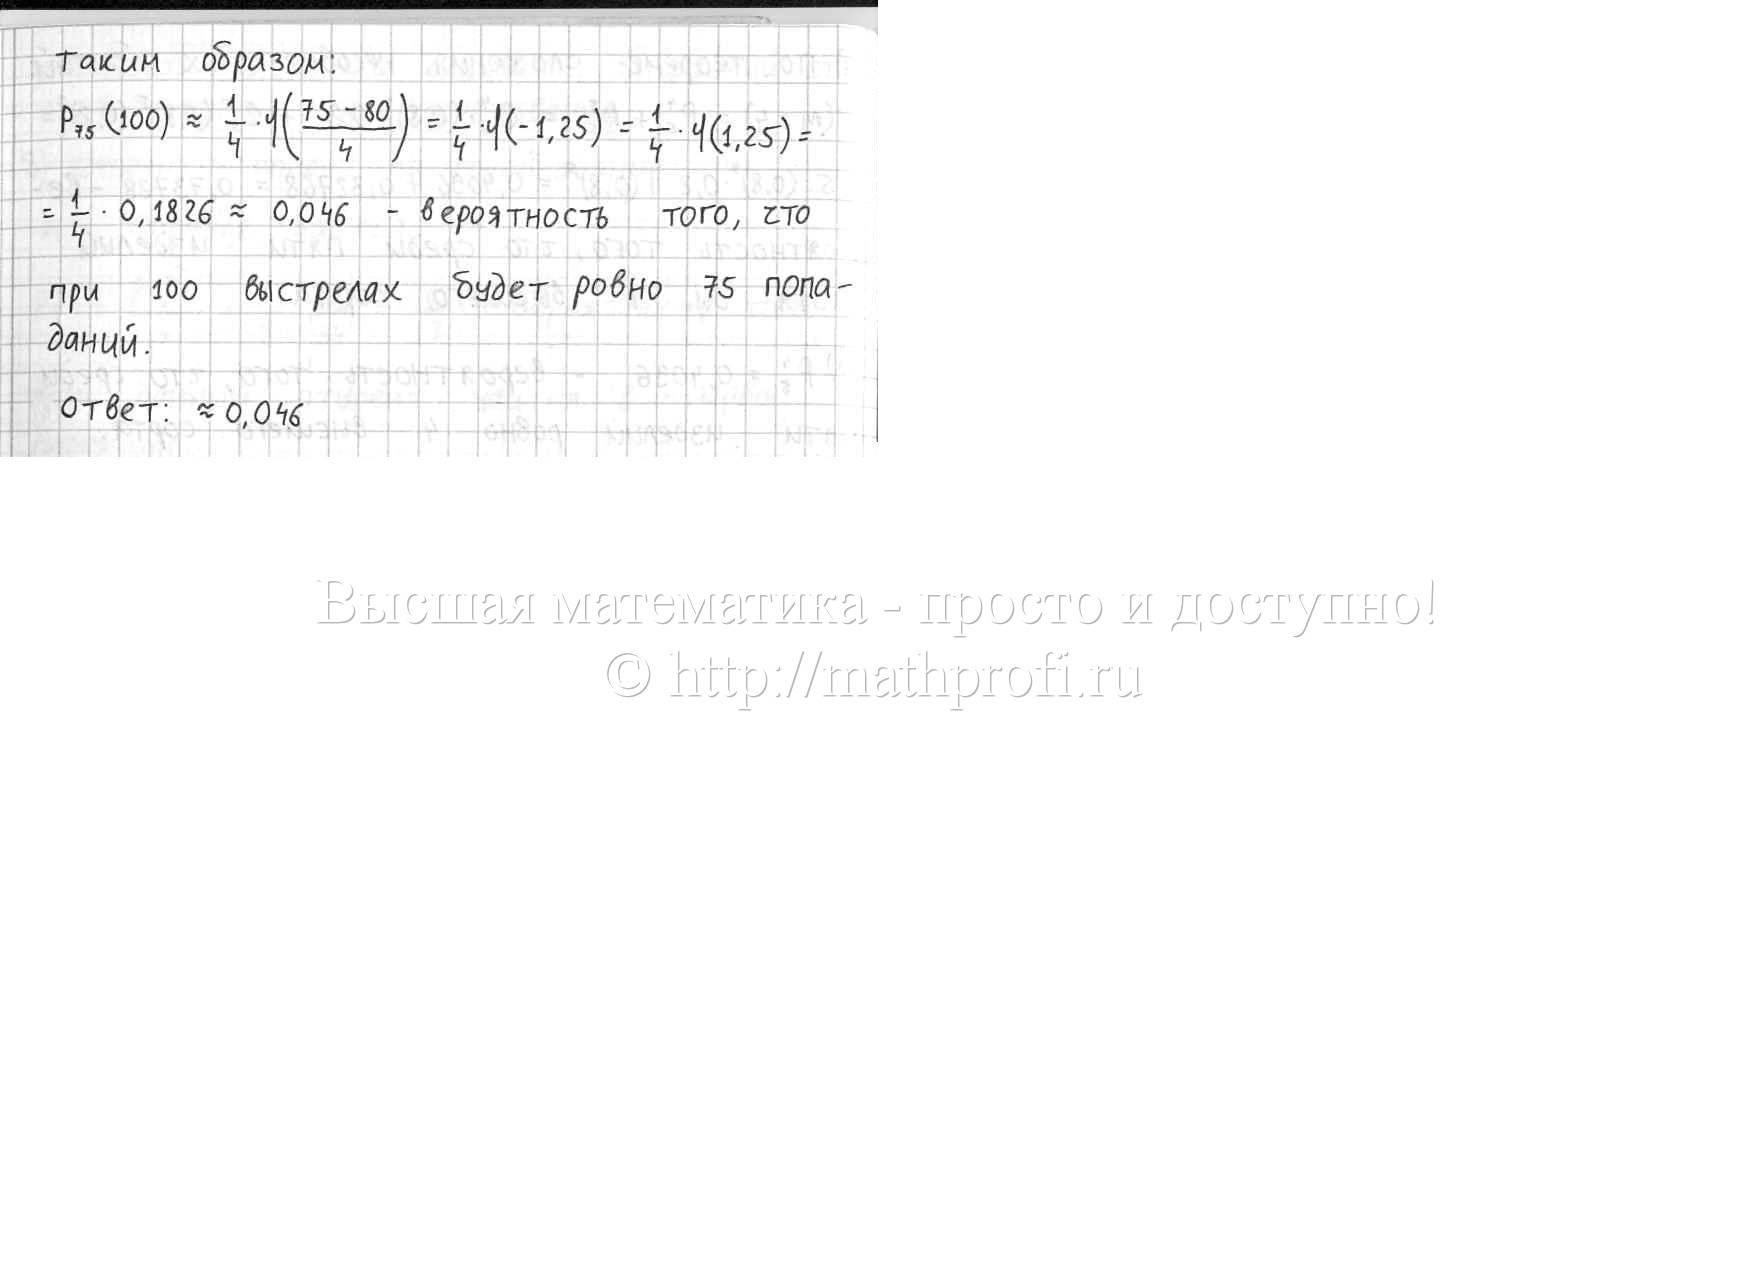 таким образом:
P₇₅(100) ≈ 1/4 · φ((75 - 80)/4) = 1/4 · φ(-1,25) = 1/4 · φ(1,25) =
= 1/4 · 0,1826 ≈ 0,046 - вероятность того, что
при 100 выстрелах будет ровно 75 попа-
даний.
Ответ: ≈ 0,046
Высшая математика - просто и доступно!
© http://mathprofi.ru